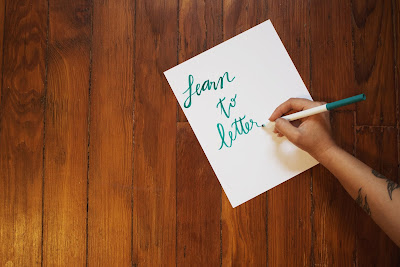 learn
to
letter